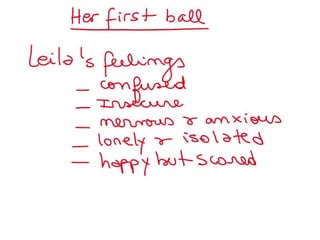 Her first ball
Leila's feelings
- confused
- Insecure
- nervous & anxious
- lonely & isolated
- happy but scared